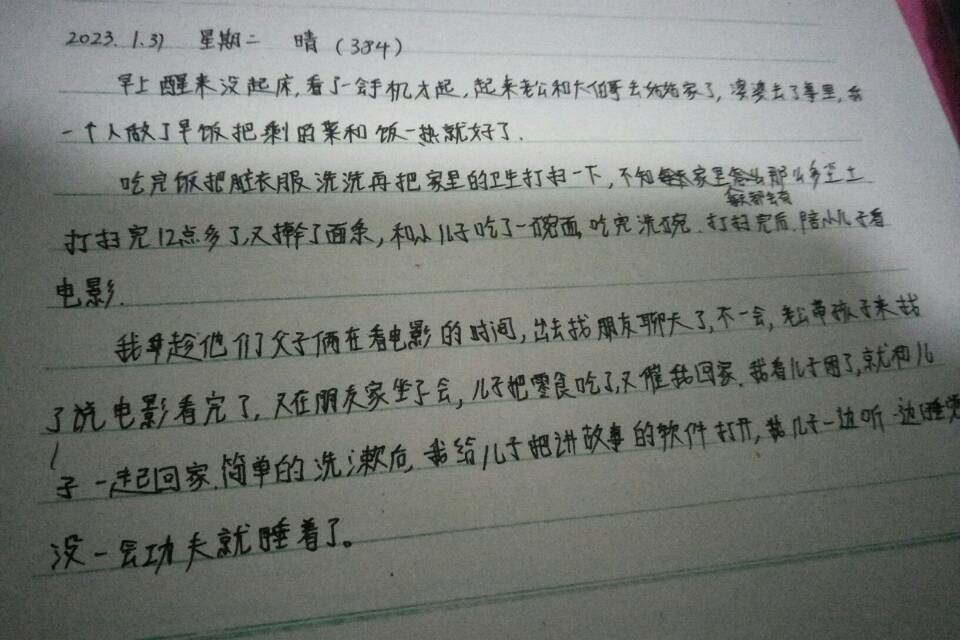 2023.1.31 星期二 晴（384）
早上醒来没起床,看了一会手机才起,起来老公和大伯哥去姑姑家了,婆婆去了事里,我
一个人做了早饭把剩的菜和饭一热就好了.
吃完饭把脏衣服洗洗再把家里的卫生打扫一下,不知家里怎么那么多尘土
每天都会有
打扫完12点多了,又擀了面条,和小儿子吃了一碗面,吃完洗碗.打扫完后.陪小儿子看
电影.
我趁他们父子俩在看电影的时间,出去找朋友聊天了,不一会,老公带孩子来找
了说电影看完了,又在朋友家坐了会,儿子把零食吃了,又催我回家.我看儿子困了,就和儿
子一起回家.简单的洗漱后,我给儿子把讲故事的软件打开,我儿子一边听一边睡觉
没一会功夫就睡着了。